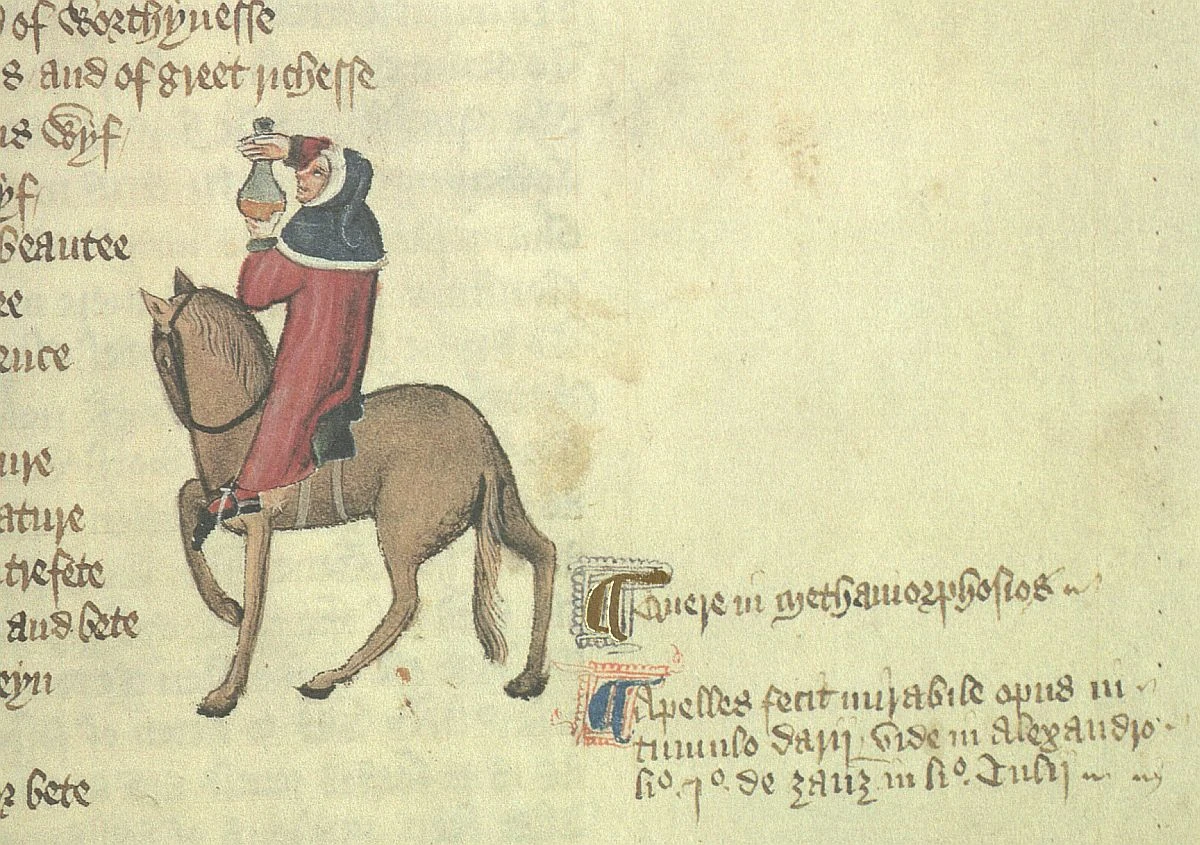 of worthynesse
s and of greet richesse
is wyf
yf
beautee
ee
ence
ure
ature
trefete
and bete
eyn
Quere in methamorphosios
Apelles fecit mirabile opus in
tumulo darij vide in alexandro
li.º .jº. de zanz in li.º Tulij
r bete